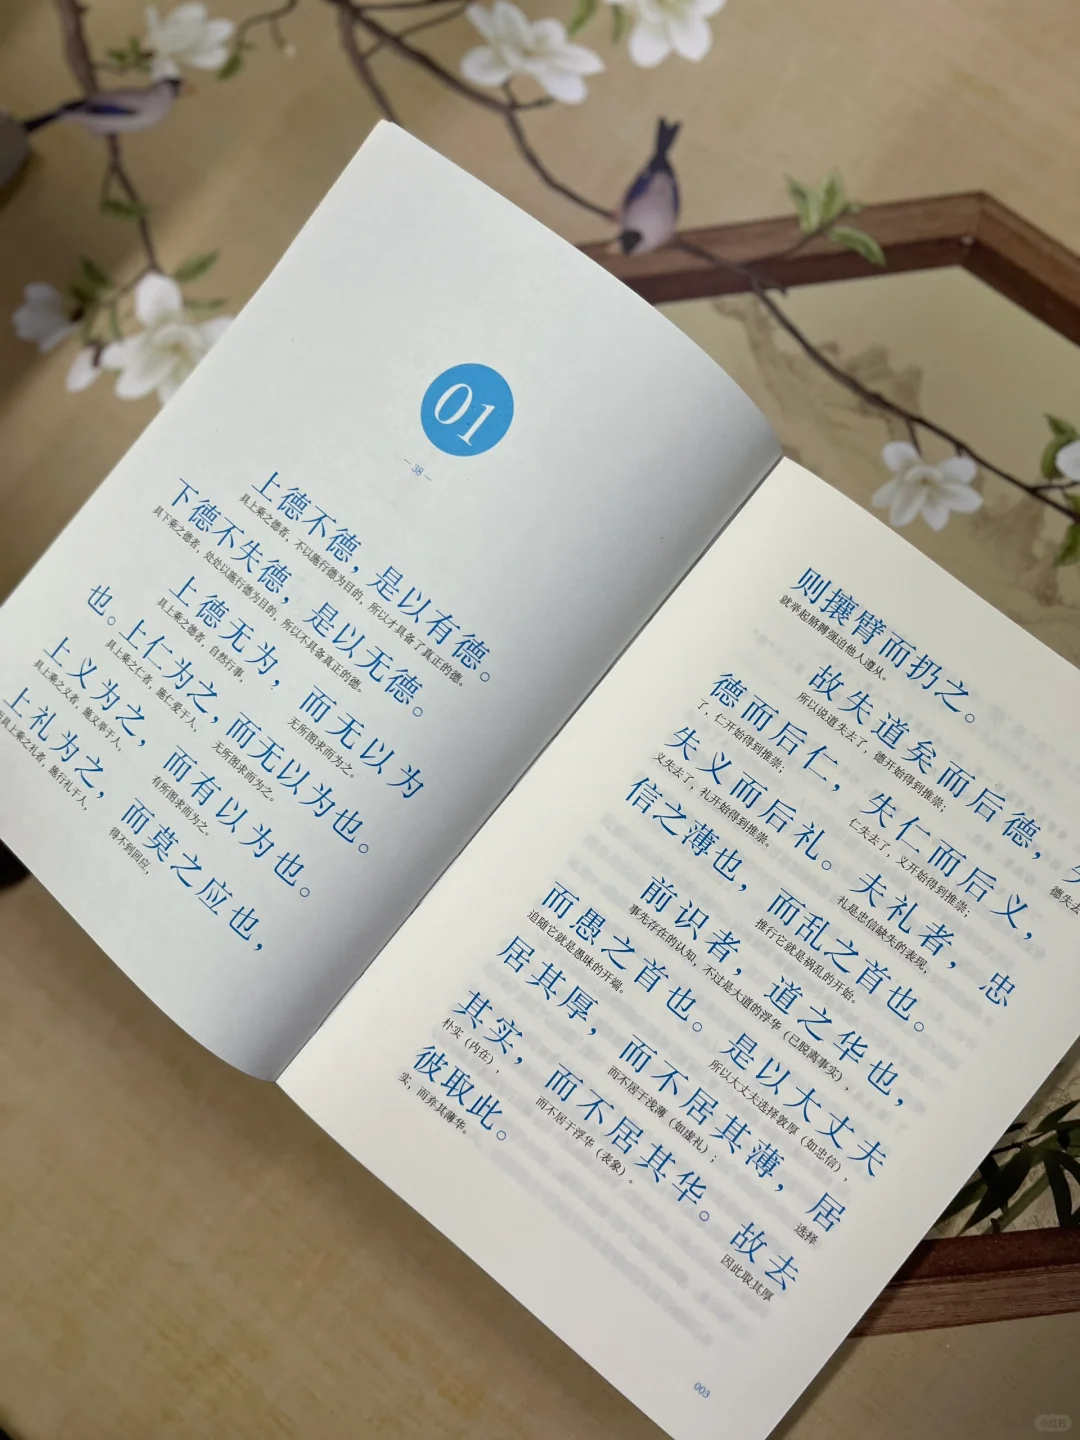 01
— 38 —
上德不德，是以有德。
具上乘之德者，不以施行德为目的，所以才具备了真正的德。
下德不失德，是以无德。
具下乘之德者，处处以施行德为目的，所以不具备真正的德。
上德无为，而无以为
具上乘之德者，自然行事， 无所图求而为之。
也。上仁为之，而无以为也。
具上乘之仁者，施仁爱于人， 无所图求而为之。
上义为之，而有以为也。
具上乘之义者，施义举于人， 有所图求而为之。
上礼为之，而莫之应也，
具上乘之礼者，施行礼于人， 得不到回应，
则攘臂而扔之。
就举起胳膊强迫他人遵从。
故失道矣而后德，
所以说道失去了，德开始得到推崇； 德失去
德而后仁，失仁而后义，
了，仁开始得到推崇； 仁失去了，义开始得到推崇；
失义而后礼。夫礼者，忠
义失去了，礼开始得到推崇。 礼是忠信缺失的表现，
信之薄也，而乱之首也。
推行它就是祸乱的开始。
前识者，道之华也，
事先存在的认知，不过是大道的浮华（已脱离事实），
而愚之首也。是以大丈夫
追随它就是愚昧的开端。 所以大丈夫选择敦厚（如忠信），
居其厚，而不居其薄，居
而不居于浅薄（如虚礼）； 选择
其实，而不居其华。故去
朴实（内在）， 而不居于浮华（表象）。 因此取其厚
彼取此。
实，而弃其薄华。
003
小红书